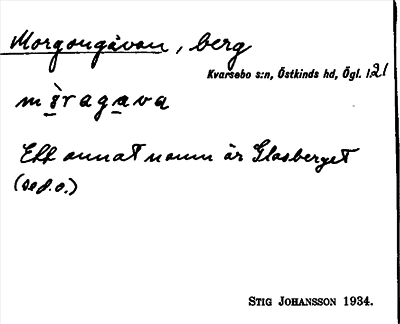 Morgongåvan, berg
Kvarsebo s:n, Östkinds hd, Ögl. l. 21
Ett annat namn är Glasberget
(se d.o.)
STIG JOHANSSON 1934.